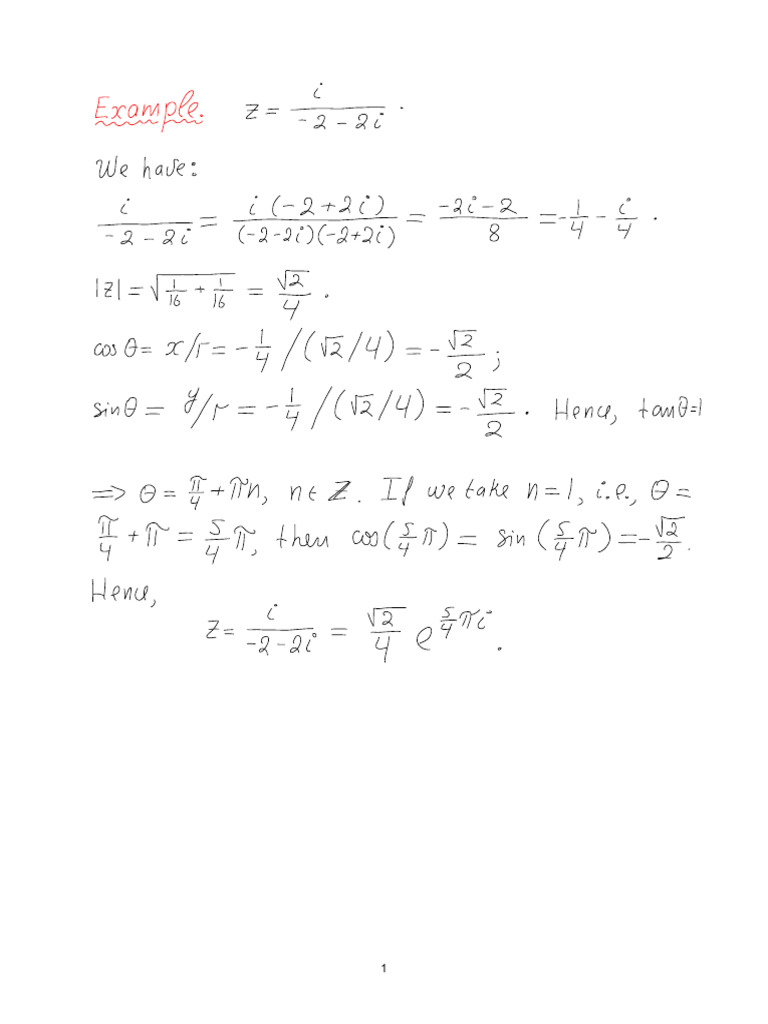 Example. z = i/(-2-2i).
We have:
i/(-2-2i) = i(-2+2i)/((-2-2i)(-2+2i)) = (-2i-2)/8 = -1/4 - i/4.
|z| = √(1/16 + 1/16) = √2/4.
cos θ = x/r = -1/4 /(√2/4) = -√2/2;
sin θ = y/r = -1/4 /(√2/4) = -√2/2. Hence, tan θ=1
=> θ = π/4 + πn, n ∈ Z. If we take n=1, i.e., θ =
π/4 + π = 5/4 π, then cos(5/4 π) = sin(5/4 π) = -√2/2.
Hence,
z = i/(-2-2i) = √2/4 e^(5/4 πi).
1